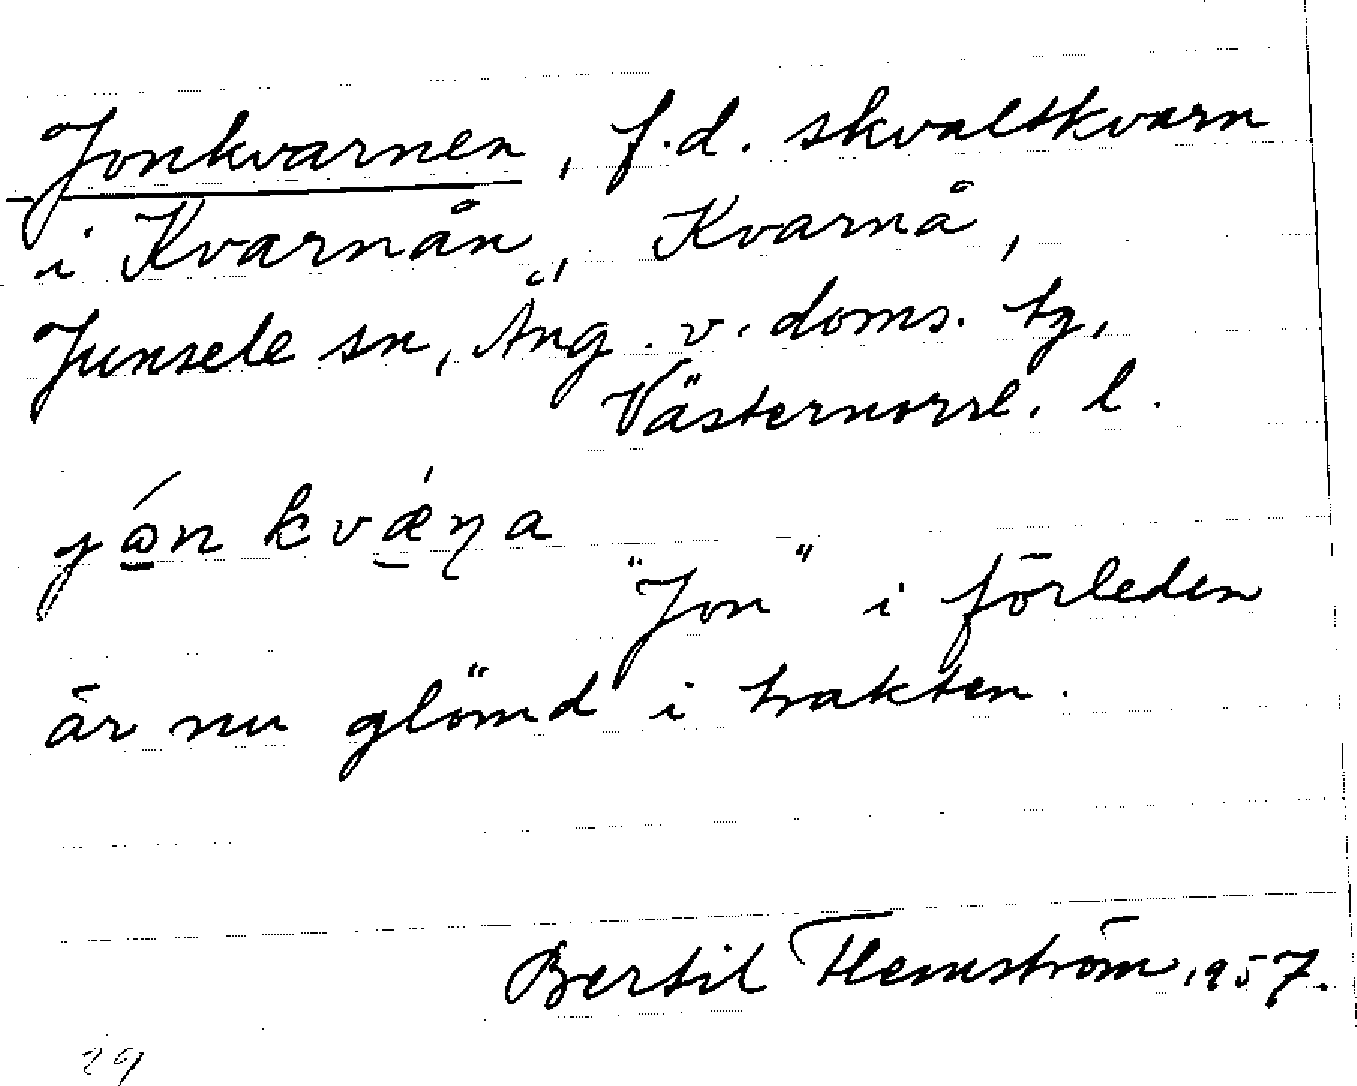 Jonkvarnen, f.d. skvaltkvarn
i Kvarnån, Kvarnå,
Junsele sn, Ång. v. doms. tg,
Västernorrl. l.
"Jon" i förleden
är nu glömd i trakten.
Bertil Flemström 1957.
29